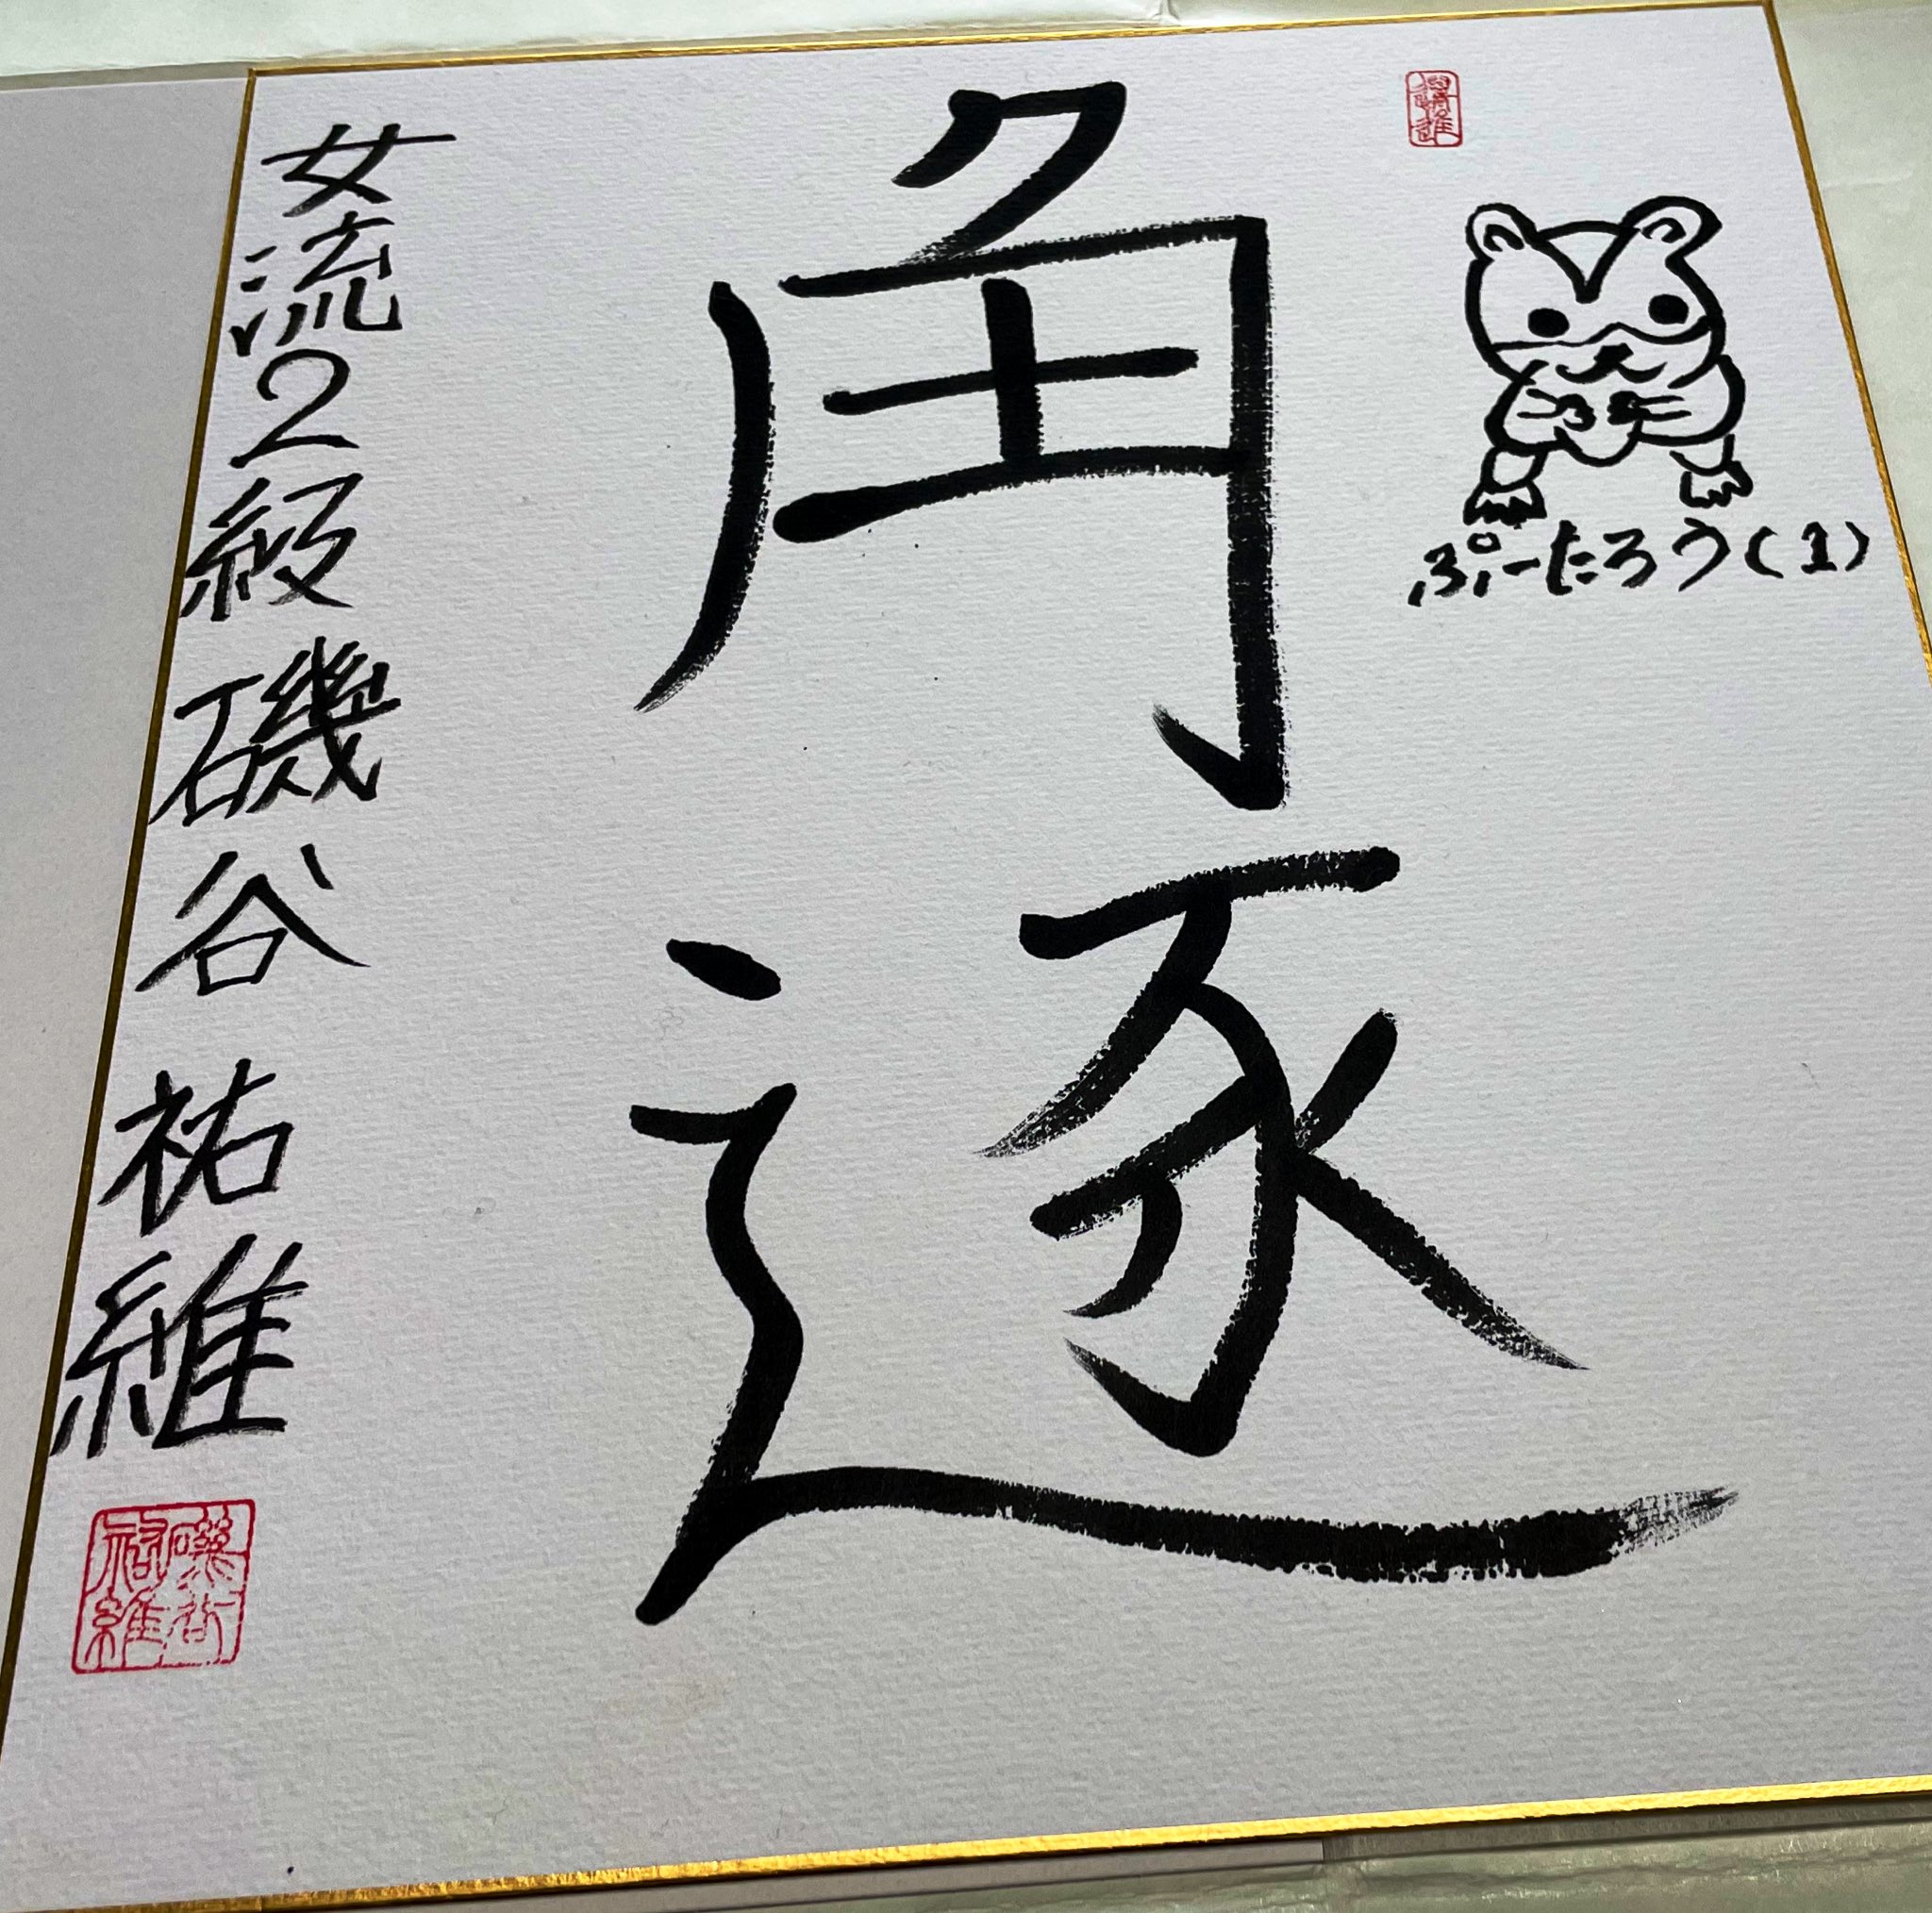 ぷーたろう(1)
角逐
女流2級 磯谷祐維
磯谷
祐維